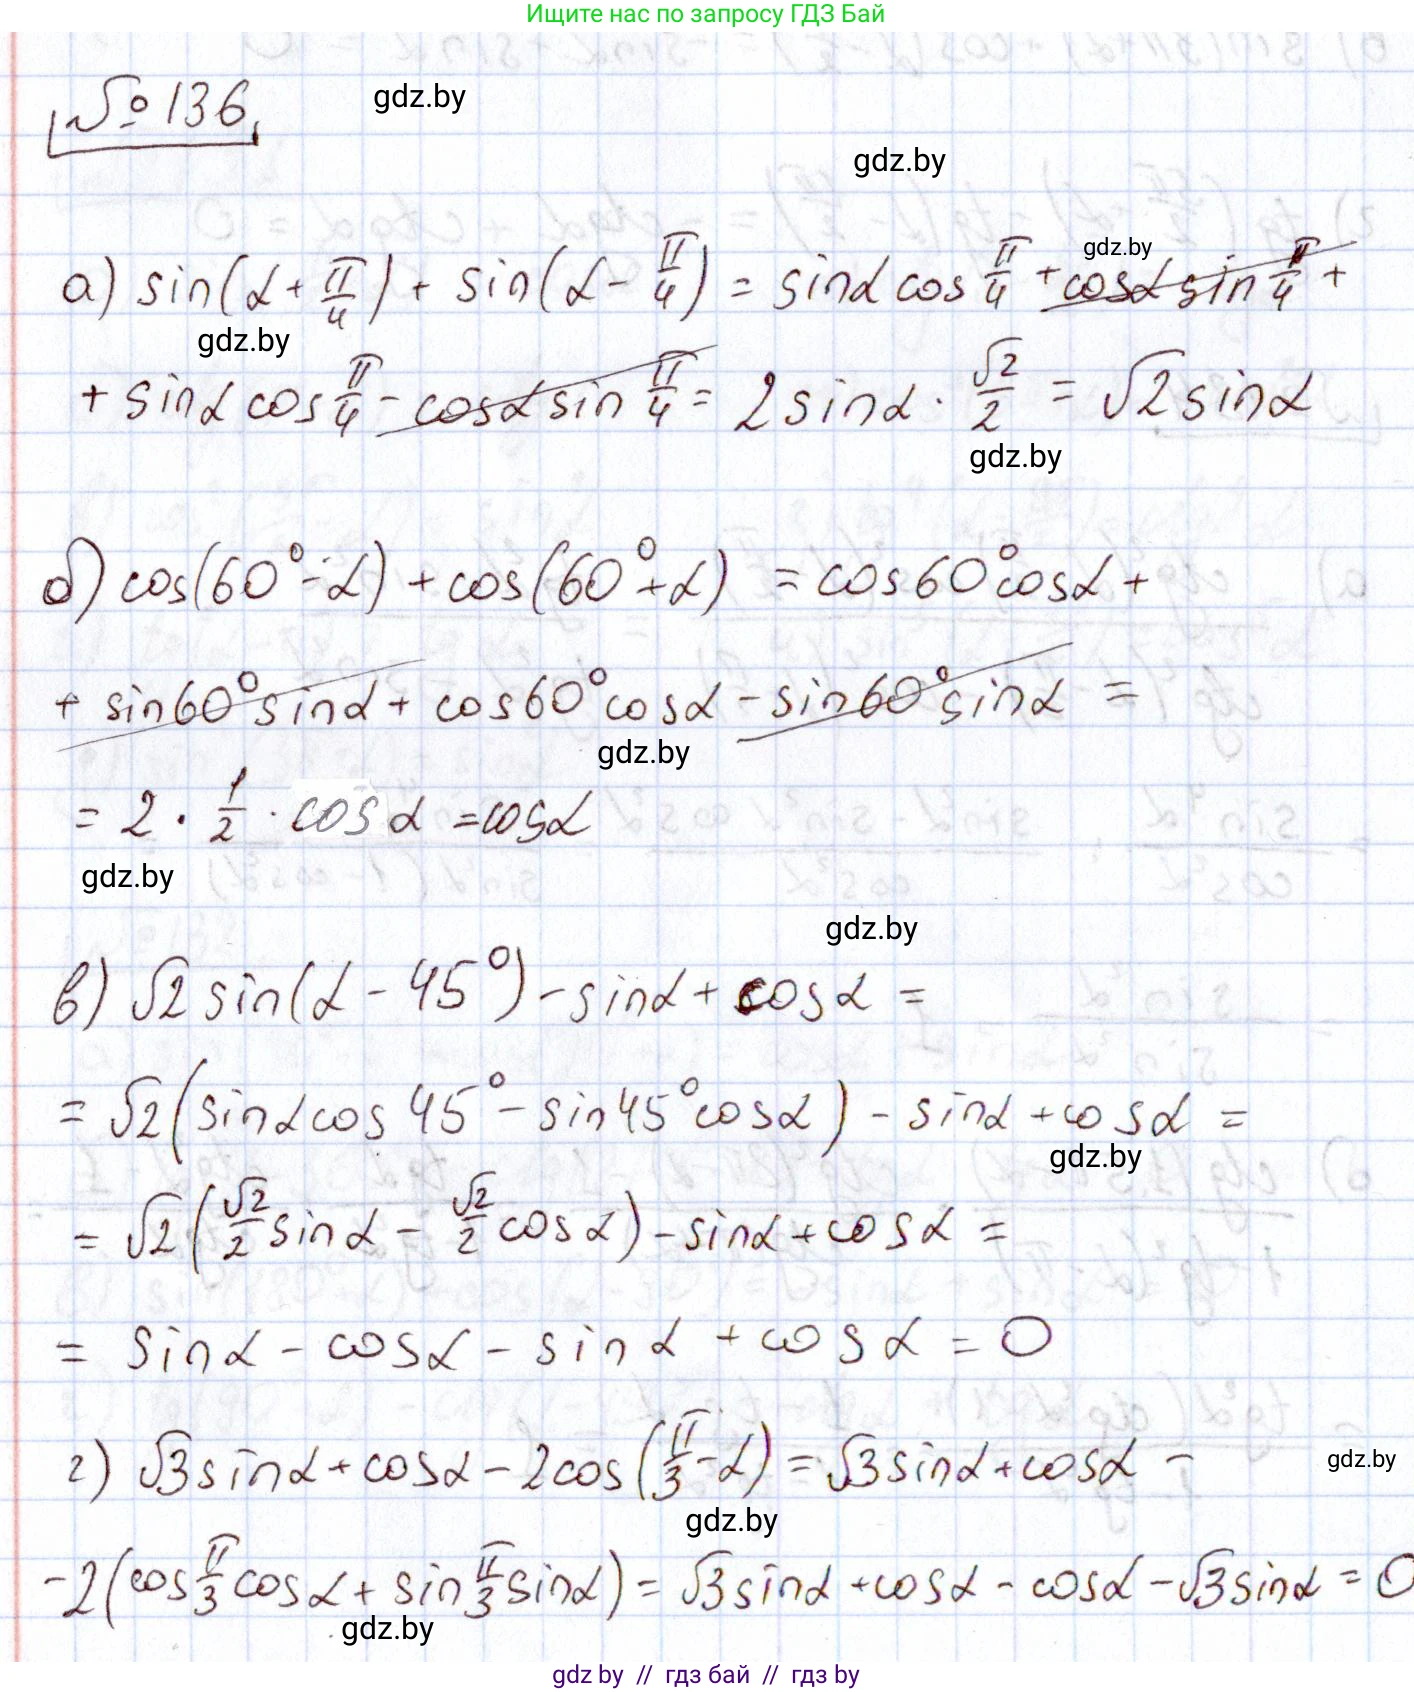 Ищите нас по запросу ГДЗ Бай
№ 136
gdz.by
gdz.by
gdz.by
а) sin(α + π/4) + sin(α - π/4) = sinα cos π/4 + cosα sin π/4 +
gdz.by
+ sinα cos π/4 - cosα sin π/4 = 2 sinα · √2/2 = √2 sinα
gdz.by
б) cos(60° - α) + cos(60° + α) = cos60° cosα +
+ sin60° sinα + cos60° cosα - sin60° sinα =
gdz.by
= 2 · 1/2 · cosα = cosα
gdz.by
gdz.by
в) √2 sin(α - 45°) - sinα + cosα =
= √2 (sinα cos 45° - sin45° cosα) - sinα + cosα =
gdz.by
= √2 (√2/2 sinα - √2/2 cosα) - sinα + cosα =
= sinα - cosα - sinα + cosα = 0
г) √3 sinα + cosα - 2cos(π/3 - α) = √3 sinα + cosα -
gdz.by
gdz.by
- 2(cos π/3 cosα + sin π/3 sinα) = √3 sinα + cosα - cosα - √3 sinα = 0
gdz.by
gdz by // гдз бай // гдз by